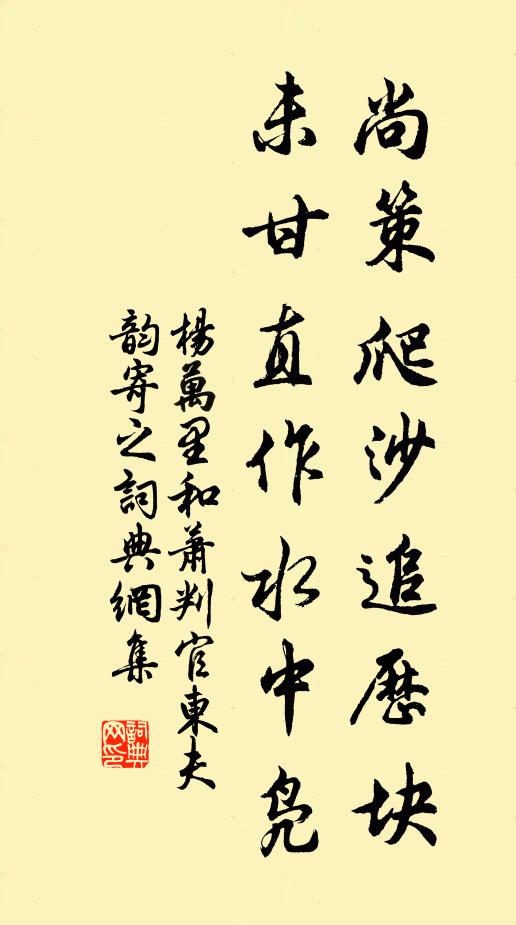 尚策爬沙追歷块
未甘直作水中凫
楊萬里和蕭判官東夫
韵寄之詞典網集
詞典網印